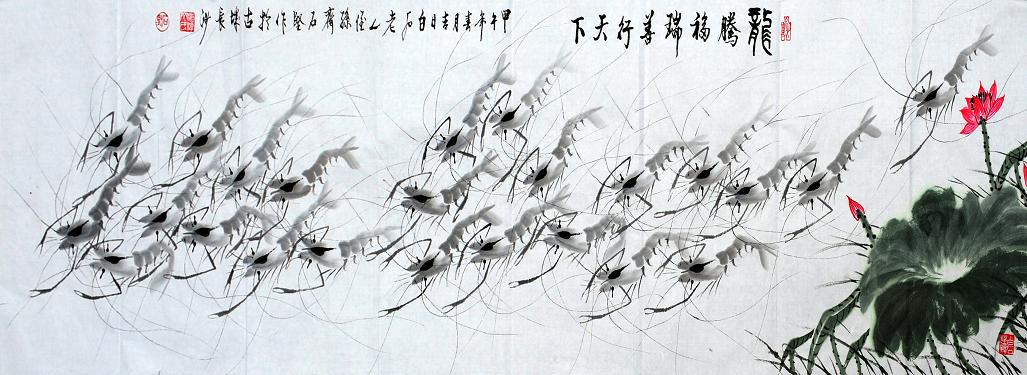 龍騰福瑞善行天下
甲午年春月吉日白石老人侄孫齊石堅作於古城長沙